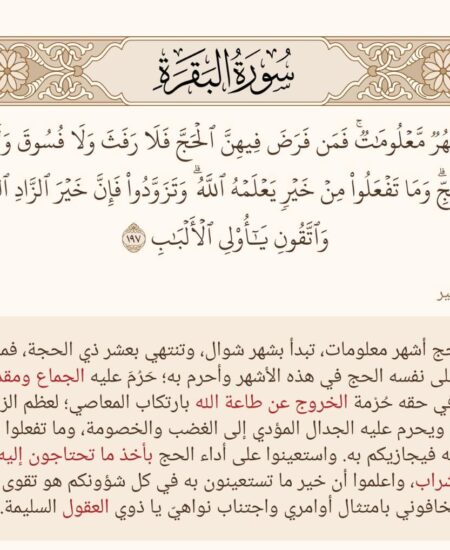 سُورَةُ البَقَرَةِ
مَّعۡلُومَٰتٞۚ فَمَن فَرَضَ فِيهِنَّ ٱلۡحَجَّ فَلَا رَفَثَ وَلَا فُسُوقَ
وَمَا تَفۡعَلُواْ مِنۡ خَيۡرٖ يَعۡلَمۡهُ ٱللَّهُۗ وَتَزَوَّدُواْ فَإِنَّ خَيۡرَ ٱلزَّادِ
وَٱتَّقُونِ يَٰٓأُوْلِي ٱلۡأَلۡبَٰبِ ١٩٧
أشهر معلومات، تبدأ بشهر شوال، وتنتهي بعشر ذي الحجة،
نفسه الحج في هذه الأشهر وأحرم به؛ حَرُمَ عليه الجماع
في حقه حُرْمة الخروج عن طاعة الله بارتكاب المعاصي؛ لعظم
ويحرم عليه الجدال المؤدي إلى الغضب والخصومة، وما تفعلوا
فيجازيكم به. واستعينوا على أداء الحج بأخذ ما تحتاجون إليه
واعلموا أن خير ما تستعينون به في كل شؤونكم هو تقوى
بامتثال أوامري واجتناب نواهيّ يا ذوي العقول السليمة.